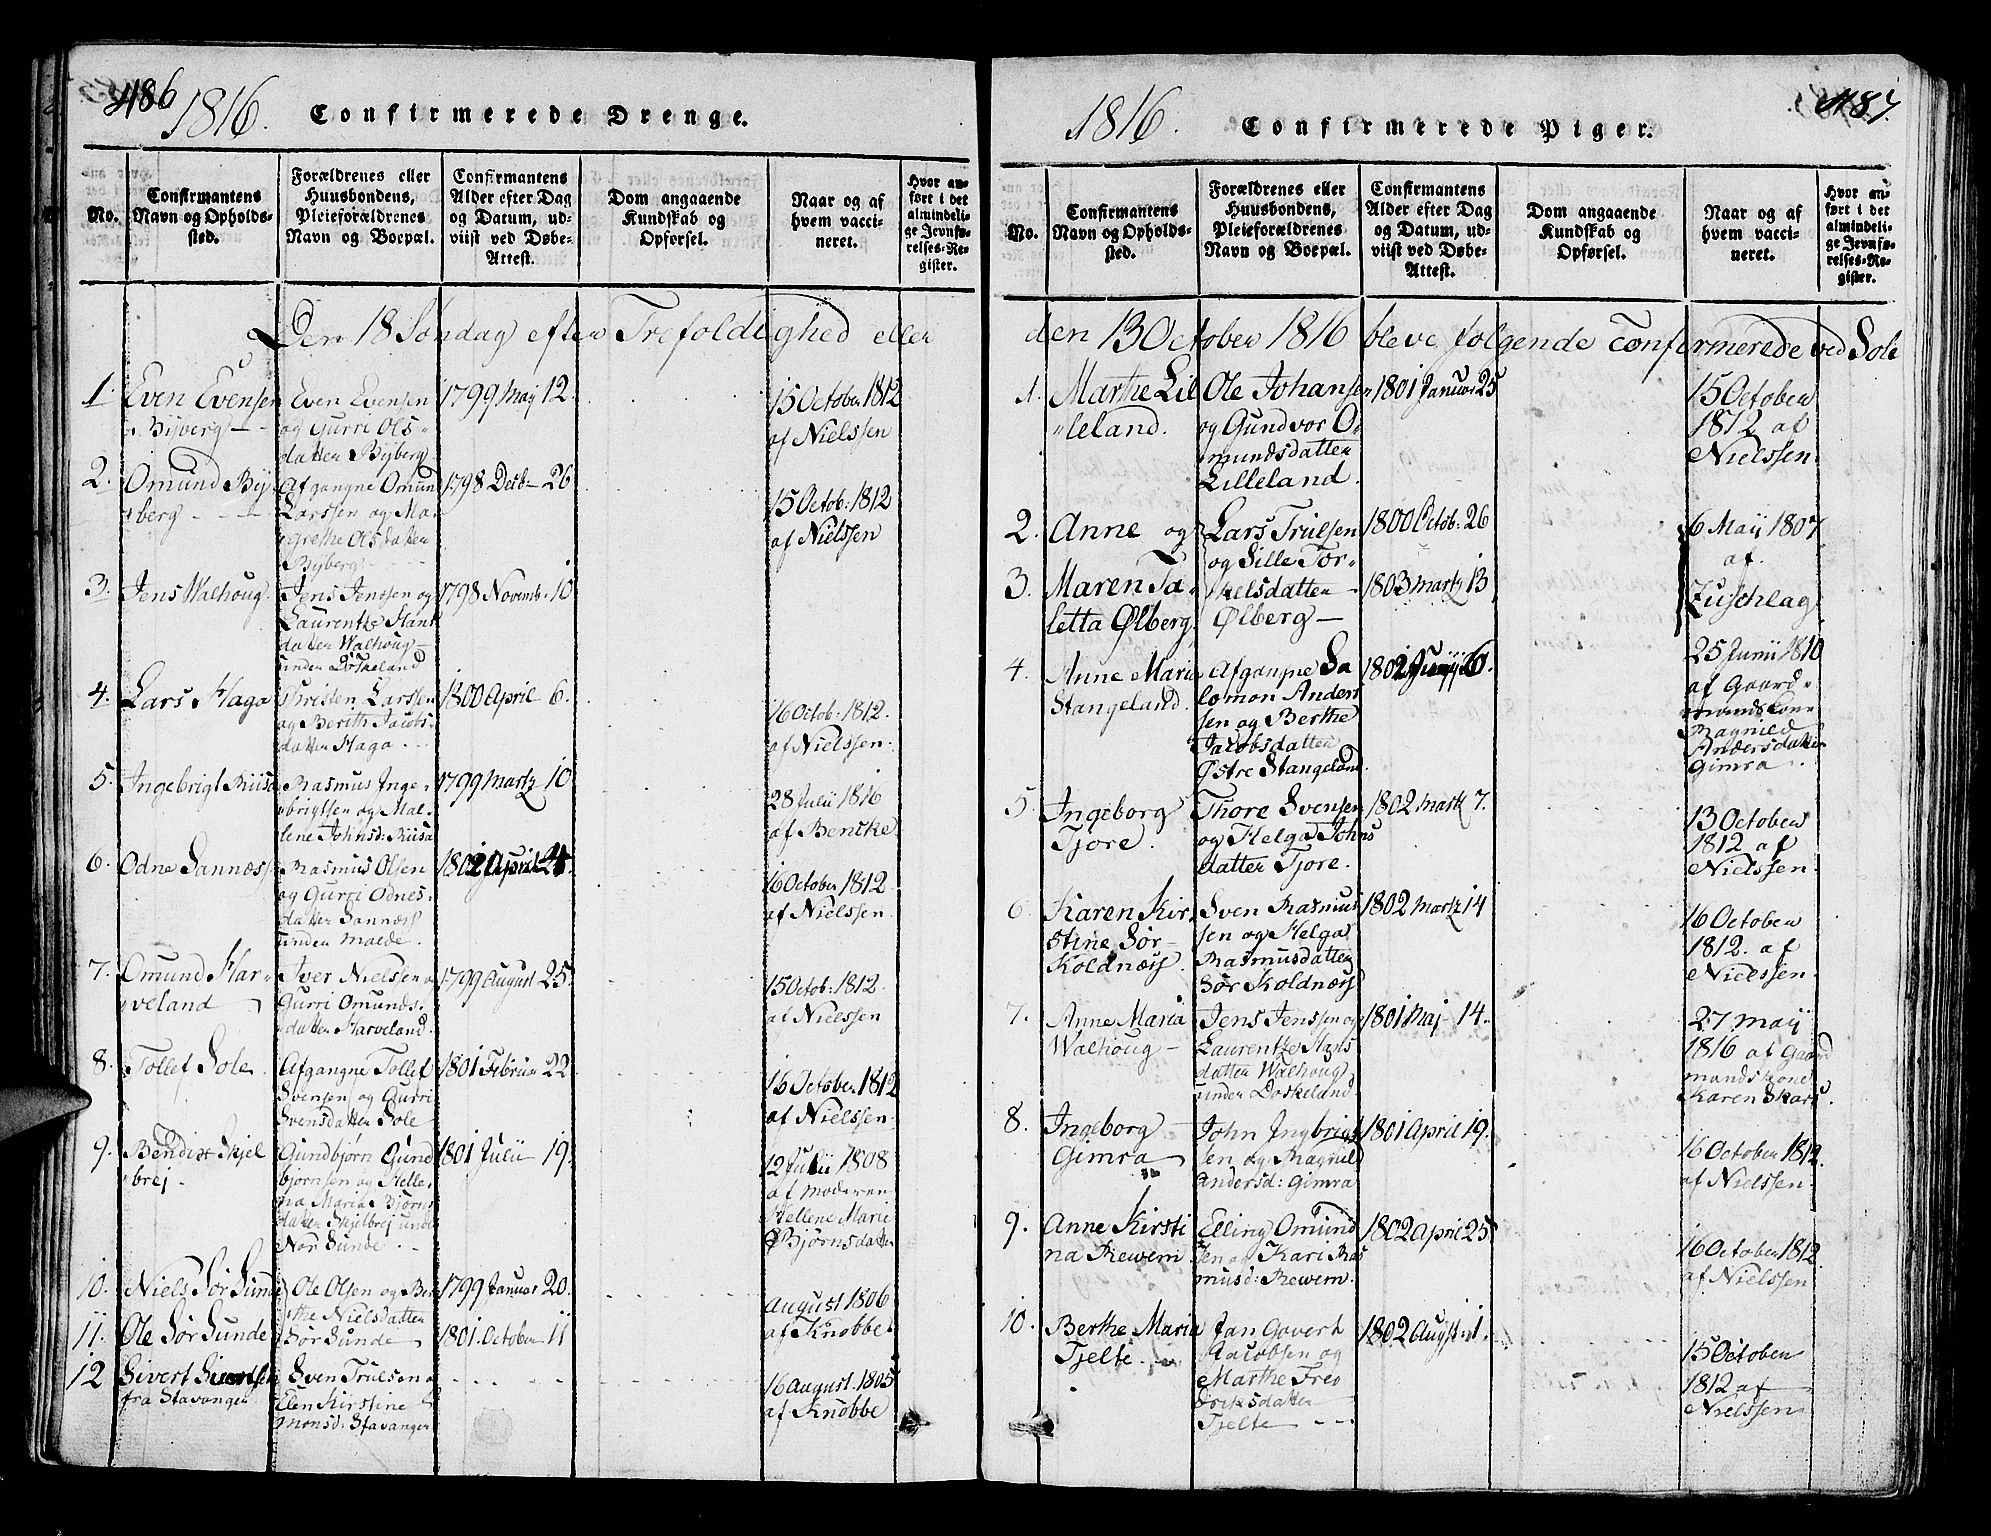 486
1816. Confirmerede Drenge.
No.
Confirmantens
Navn og Opholds-
sted.
Forældrenes eller
Huusbondens,
Pleieforældrenes
Navn og Boepæl.
Confirmantens
Alder efter Dag
og Datum, ud-
viist ved Døbe-
Attest.
Dom angaaende
Kundskab og
Opførsel.
Naar og af
hvem vacci-
neret.
Hvor an-
ført i det
almindeli-
ge Jevnfø-
relses-Re-
gister.
Den 18 Søndag efter Trefoldighed eller
1.
Even Evensen
Byberg
Even Evensen
og Gurri Ols-
datter Byberg
1799 May 12.
15 October 1812
af Nielssen
2.
Omund By-
berg
Afgangne Omund
Larssen og Ma-
grethe Olsdatter
Byberg
1798 Decb 26
15 Octob: 1812
af Nielssen
3.
Jens Walhoug
Jens Jenssen og
Laurentze Hans
datter Walhoug
under Doskeland
1798 Novemb: 10
4.
Lars Haga
Christen Larssen
og Berith Jacobs-
datter Haga
1800 April 6.
16 Octob: 1812.
af Nielssen
5.
Ingebrigt Riisa
Rasmus Inge-
brigtsen og Mal-
lene Johnsd: Riisa
1799 Martz 10
28 Julii 1816
af Bencke
6.
Odne Sannæss
Rasmus Olsen
og Gurri Odnes-
datter Sannæss
under Malde.
1802 April 24.
16 October 1812
af Nielssen
7.
Omund Har-
veland
Iver Nielsen og
Gurri Omunds-
datter Harveland.
1799 August 25
15 Octob: 1812.
af Nielssen
8.
Tollef Sole
Afgangne Tollef
Svensen og Gurri
Svensdatter Sole
1801 Februar 22
16 October 1812
af Nielssen
9.
Bendix Skjel
brej
Gundbjørn Gund
bjørnsen og Helle-
na Maria Bjørns
datter Skjelbrej under
Nor Sunde
1801 Julii 19.
12 Julii 1808
af Moderen
Hellene Marie
Bjørnsdatter
10.
Niels Sør Sunde
Ole Olsen og Ber
the Nielsdatter
Sør Sunde
1799 Januar 20.
August 1806
af Knobbe
11.
Ole Sør Sunde
1801. October 11
12
Sivert Sivertsen
fra Stavanger
Sven Trulsen og
Elen Kirstine
Monsd: Stavanger
16 August. 1805
af Knobbe
487.
1816. Confirmerede Piger.
No.
Confirmantens
Navn og Opholds-
sted.
Forældrenes eller
Huusbondens,
Pleieforældrenes
Navn og Boepæl.
Confirmantens
Alder efter Dag
og Datum, ud-
viist ved Døbe-
Attest.
Dom angaaende
Kundskab og
Opførsel.
Naar og af
hvem vacci-
neret.
Hvor an-
ført i det
almindeli-
ge Jevnfø-
relses-Re-
gister.
den 13 October 1816 bleve følgende Confirmerede ved Sole
1.
Marthe Lil
leland.
Ole Johansen
og Gundvor O-
mundsdatter
Lilleland.
1801 Januar 25
15 October
1812 af
Nielssen.
2.
Anne og
Lars Trulsen
og Sille Tor-
kelsdatter
Ølberg
1800 Octob: 26
6 May 1807
af
Zuschlag
3.
Maren Ta-
letta Ølberg
1803 Martz 13
4.
Anne Maria
Stangeland.
Afgangne Sa
lomon Anders
sen og Berthe
Jacobsdatter
Østre Stangeland
25 Junii 1810
af Gaard-
mandskone
Magnild
Andersdatter
Gimra
5.
Ingeborg
Tjore.
Thore Svensen
og Helga Johns
datter Tjore.
1802 Martz 7.
13 October
1812 af
Nielssen.
6.
Karen Kir
stine Sør
Koldnæss.
Sven Rasmus
sen og Helga
Rasmusdatter
Sør Koldnæss
1802 Martz 14
16 October
1812. af
Nielssen.
7.
Anne Maria
Walhoug
Jens Jenssen og
Laurentze Hans
datter Walhoug
under Doskeland
1801 Maj 14.
27 May
1816 af Gaard
mandskone
Karen Skars.
8.
Ingeborg
Gimra
John Ingbrigt
sen og Magnild
Andersd: Gimra
1801 April 19.
16 October 1812.
af Nielssen.
9.
Anne Kirsti
na Rewem
Elling Omund
sen og Kari Ras
musd: Rewem.
1802 April 25
16 October 1812.
af Nielssen
10.
Berthe Maria
Tjelte.
Jan Govert
Jacobsen og
Marthe Fred
driksdatter
Tjelte
1802 August 1.
15 October
1812 af
Nielssen